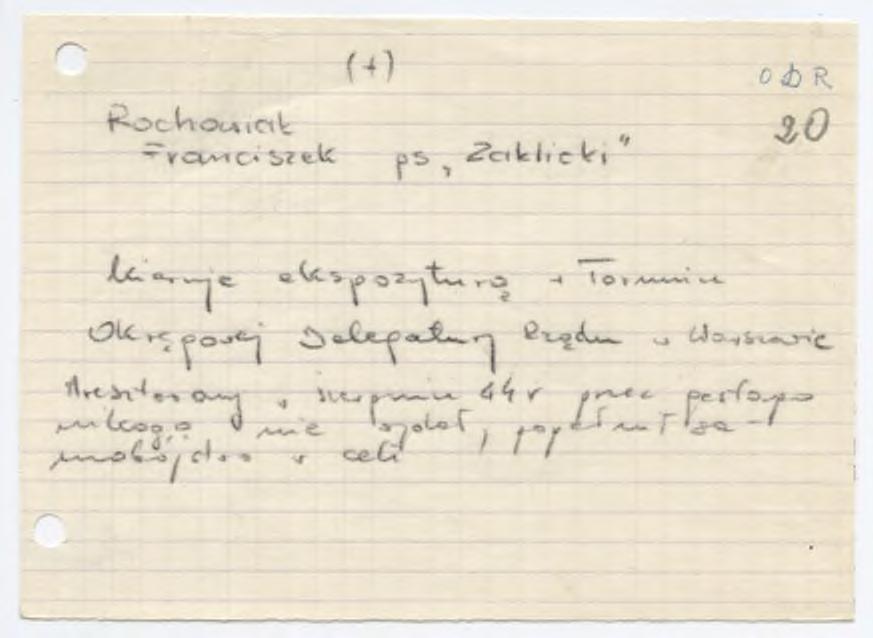 (+)
ODR
20
Rochowiak
Franciszek ps. „Zaklicki"
kieruje ekspozyturą w Toruniu
Okręgowej Delegatury Rządu w Warszawie
Aresztowany w sierpniu 44 r przez gestapo
nikogo nie wydał, popełnił sa-
mobójstwo w celi